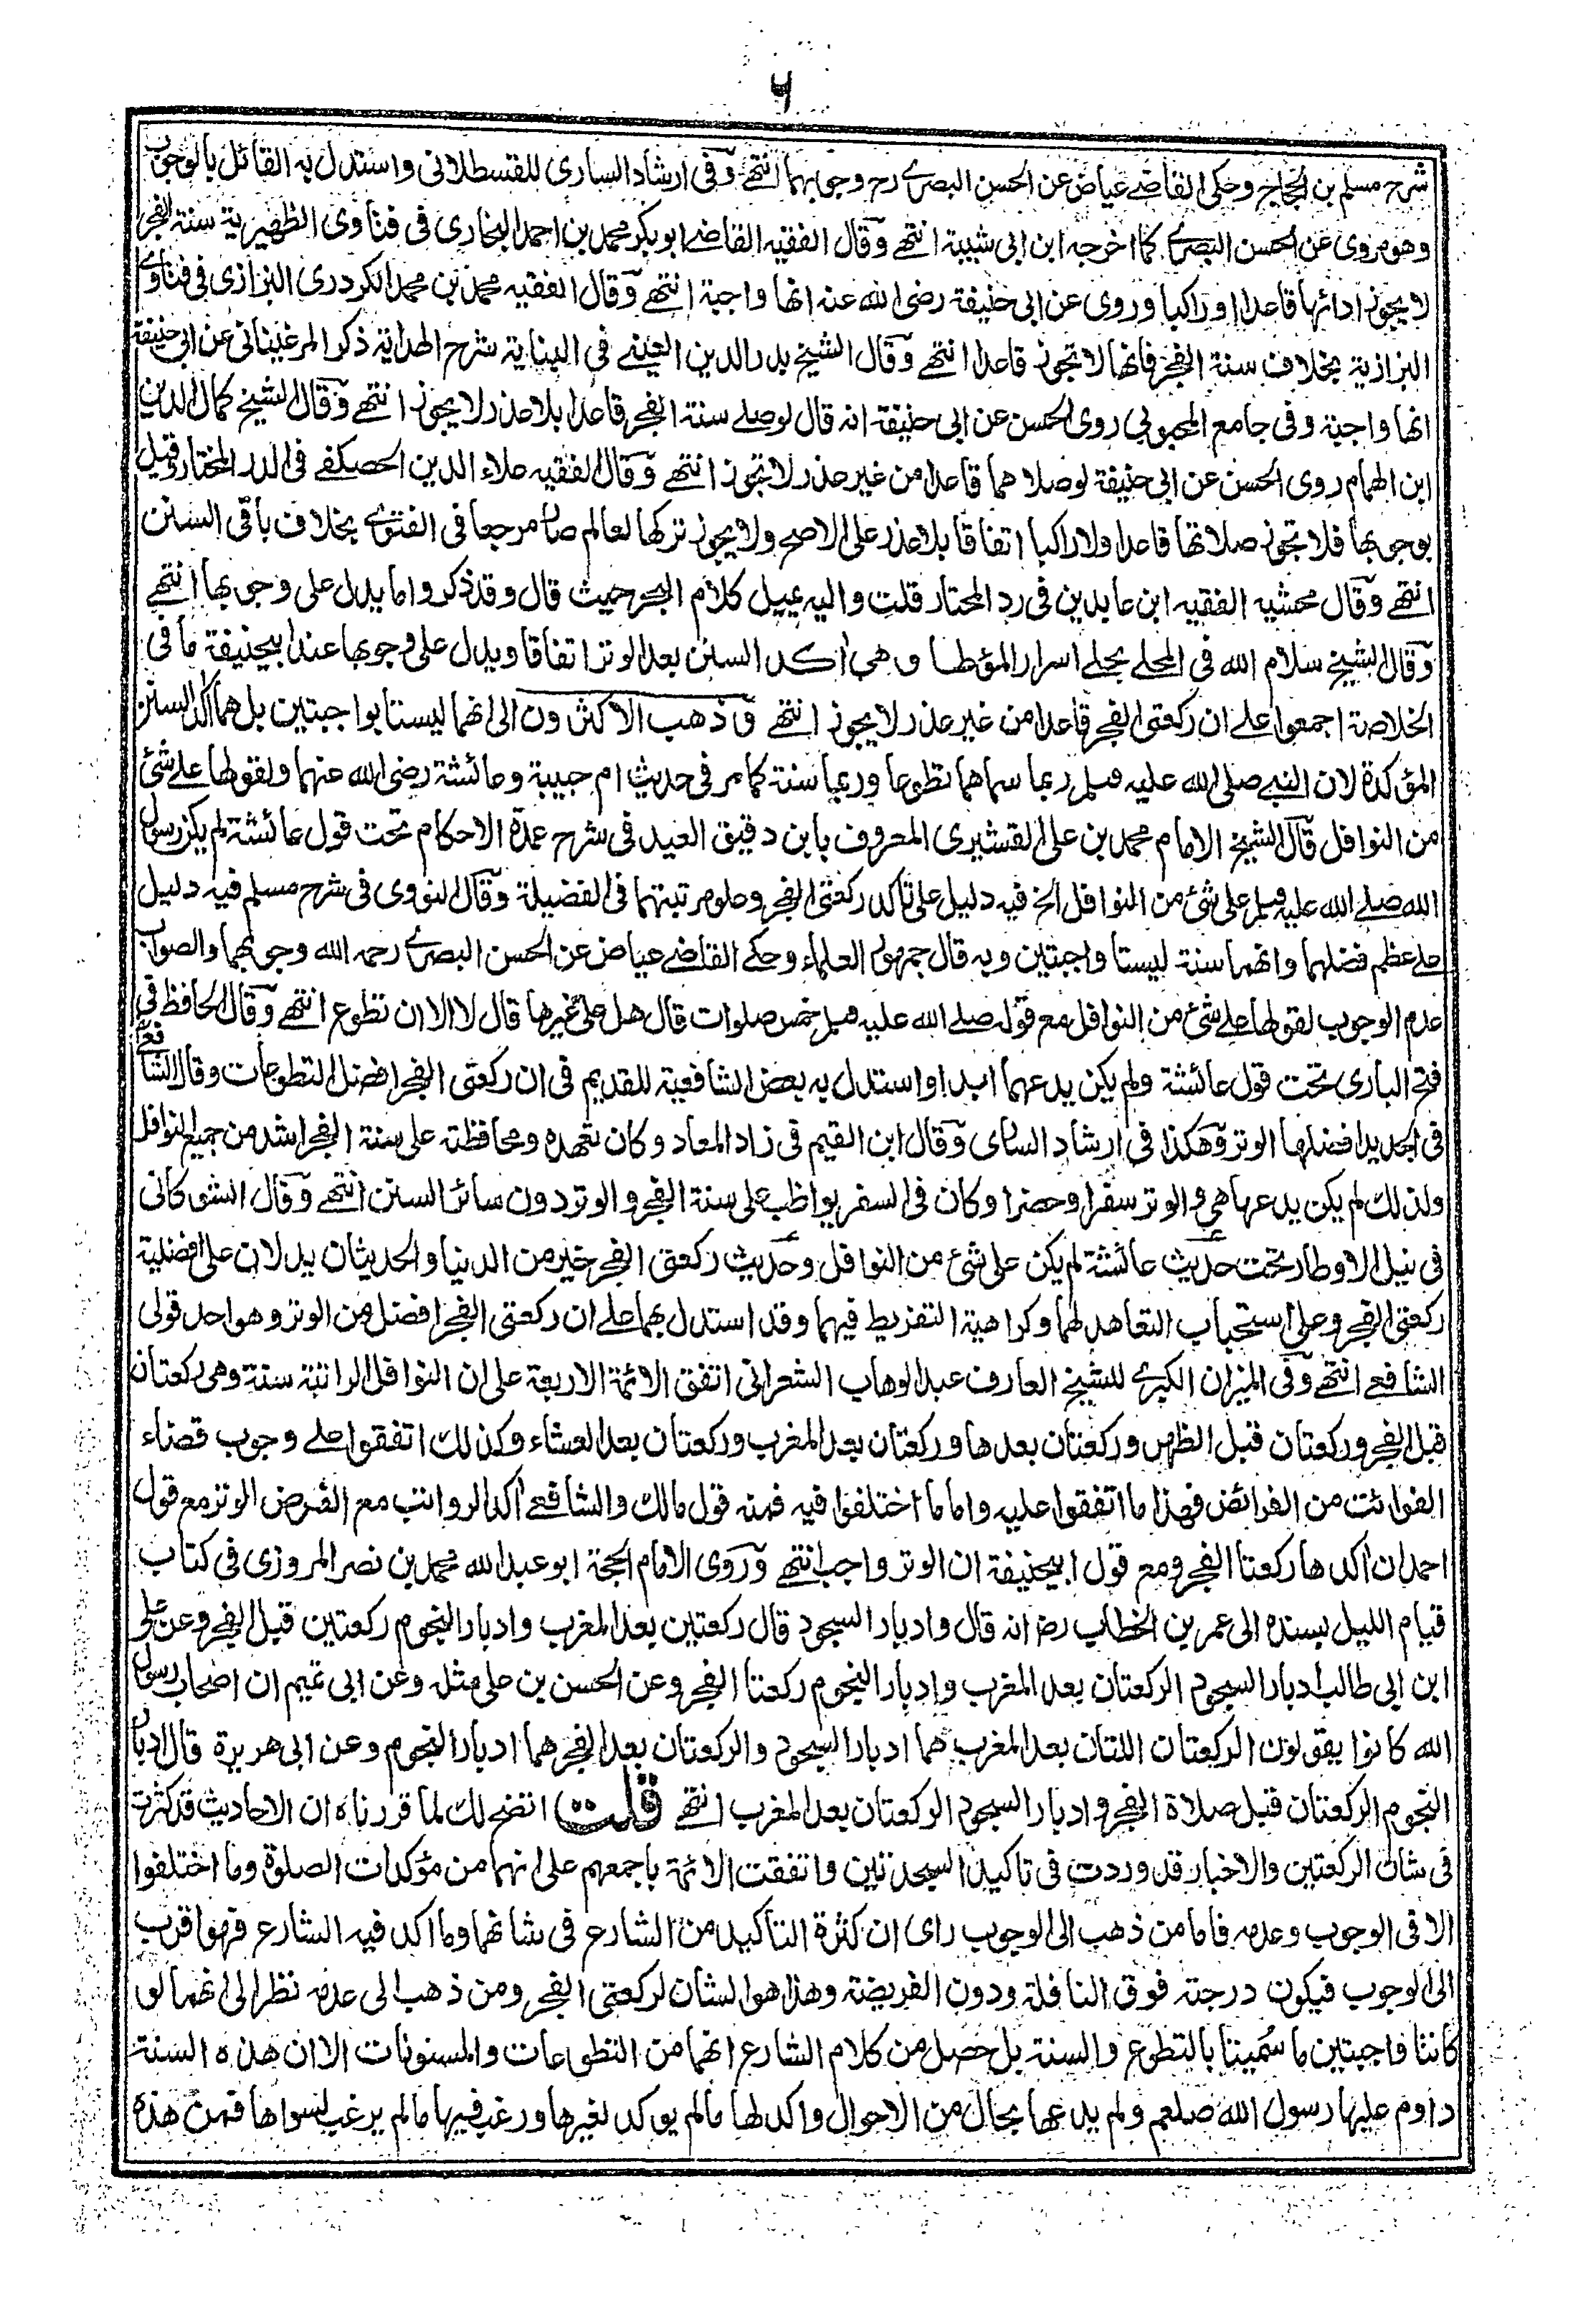 ۶
شرح مسلم بن الحجاج وحكى القاضے عياض عن الحسن البصرے رح وجوبهما انتهے وفى ارشاد السارى للقسطلانى واستدل به القائل بالوجوب
وهو مروى عن الحسن البصرے كما اخرجه ابن ابى شيبة انتهے وقال الفقيه القاضے ابو بكر محمد بن احمد البخارى فى فتاوى الظهيرية سنة الفجر
لا يجوز ادائها قاعدا او راكبا وروى عن ابى حنيفة رضى الله عنه انها واجبة انتهے وقال الفقيه محمد بن محمد الكردرى البزازى فى فتاوے
البزازية بخلاف سنة الفجر فانها لا تجوز قاعدا انتهے وقال الشيخ بدر الدين العينے فى البناية شرح الهداية ذكر المرغينانى عن ابى حنيفة
انها واجبة وفى جامع المحبوبى روى الحسن عن ابى حنيفة انه قال لو صلے سنة الفجر قاعدا بلا عذر لا يجوز انتهے وقال الشيخ كمال الدين
ابن الهمام روى الحسن عن ابى حنيفة لو صلاهما قاعدا من غير عذر لا تجوز انتهے وقال الفقيه علاء الدين الحصكفے فى الدر المختار وقيل
بوجوبها فلا تجوز صلاتها قاعدا ولا راكبا اتفاقا بلا عذر على الاصح ولا يجوز تركها لعالم صار مرجعا فى الفتوے بخلاف باقى السنن
انتهے وقال محشيه الفقيه ابن عابدين فى رد المحتار قلت واليه يميل كلام البحر حيث قال وقد ذكروا ما يدل على وجوبها انتهے
وقال الشيخ سلام الله فى المحلے بحلے اسرار المؤطا وهى اكد السنن بعد الوتر اتفاقا ويدل على وجوبها عند ابيحنيفة ما فى
الخلاصة اجمعوا علے ان ركعتى الفجر قاعدا من غير عذر لا يجوز انتهے وذهب الاكثرون الى انهما ليستا بواجبتين بل هما اكد السنن
المؤكدة لان النبے صلى الله عليه وسلم ربما سماهما تطوعا وربما سنة كما مر فى حديث ام حبيبة وعائشة رضى الله عنهما ولقولها علے شئ
من النوافل قال الشيخ الامام محمد بن على القشيرى المعروف بابن دقيق العيد فى شرح عمدة الاحكام تحت قول عائشة لم يكن رسول
الله صلے الله عليه وسلم على شئ من النوافل الخ فيه دليل على تاكد ركعتى الفجر وعلو مرتبتهما فى الفضيلة وقال النووى فى شرح مسلم فيه دليل
علے عظم فضلهما وانهما سنة ليستا واجبتين وبه قال جمهور العلماء وحكے القاضے عياض عن الحسن البصرے رحمه الله وجوبهما والصواب
عدم الوجوب لقولها علے شئ من النوافل مع قوله صلے الله عليه وسلم خمس صلوات قال هل علے غيرها قال لا الا ان تطوع انتهے وقال الحافظ فى
فتح البارى تحت قول عائشة ولم يكن يدعهما ابدا واستدل به بعض الشافعية للقديم فى ان ركعتى الفجر افضل التطوعات وقال الشافعے
فى الجديد افضلها الوتر وهكذا فى ارشاد السارى وقال ابن القيم فى زاد المعاد وكان تعهده ومحافظته على سنة الفجر اشد من جميع النوافل
ولذلك لم يكن يدعها هى والوتر سفرا وحضرا وكان فى السفر يواظب على سنة الفجر والوتر دون سائر السنن انتهے وقال الشوكانى
فى نيل الاوطار تحت حديث عائشة لم يكن على شئ من النوافل وحديث ركعتى الفجر خير من الدنيا والحديثان يدلان على افضلية
ركعتى الفجر وعلى استحباب التعاهد لهما وكراهية التفريط فيهما وقد استدل بهما علے ان ركعتى الفجر افضل من الوتر وهو احد قولى
الشافعے انتهے وفى الميزان الكبرے للشيخ العارف عبد الوهاب الشعرانى اتفق الائمة الاربعة على ان النوافل الراتبة سنة وهى ركعتان
قبل الفجر وركعتان قبل الظهر وركعتان بعدها وركعتان بعد المغرب وركعتان بعد العشاء وكذلك اتفقوا علے وجوب قضاء
الفوائت من الفرائض فهذا ما اتفقوا عليه واما ما اختلفوا فيه فمنه قول مالك والشافعے اكد الرواتب مع الفرض الوتر مع قول
احمد ان اكدها ركعتا الفجر ومع قول ابيحنيفة ان الوتر واجب انتهے وروى الامام الحجة ابو عبد الله محمد بن نصر المروزى فى كتاب
قيام الليل بسنده الى عمر بن الخطاب رض انه قال وادبار السجود قال ركعتين بعد المغرب وادبار النجوم ركعتين قبل الفجر وعن على
ابن ابى طالب ادبار السجود الركعتان بعد المغرب وادبار النجوم ركعتا الفجر وعن الحسن بن على مثله وعن ابى تميم ان اصحاب رسول
الله كانوا يقولون الركعتان اللتان بعد المغرب هما ادبار السجود والركعتان بعد الفجر هما ادبار النجوم وعن ابى هريرة قال ادبار
النجوم الركعتان قبل صلاة الفجر وادبار السجود الركعتان بعد المغرب انتهے قلت اتضح لك لما قررناه ان الاحاديث قد كثرت
فى شان الركعتين والاخبار قد وردت فى تاكيد السجدتين واتفقت الائمة باجمعهم على انهما من مؤكدات الصلوة وما اختلفوا
الا فى الوجوب وعدمه فاما من ذهب الى الوجوب راى ان كثرة التاكيد من الشارع فى شانهما وما اكد فيه الشارع فهو اقرب
الى الوجوب فيكون درجته فوق النافلة ودون الفريضة وهذا هو الشان لركعتى الفجر ومن ذهب الى عدمه نظر الى انهما لو
كانتا واجبتين ما سميتا بالتطوع والسنة بل حصل من كلام الشارع انهما من التطوعات والمسنونات الا ان هذه السنة
داوم عليها رسول الله صلعم ولم يدعها بحال من الاحوال واكد لها مالم يوكد لغيرها ورغب فيها مالم يرغب لسواها فمن هذه